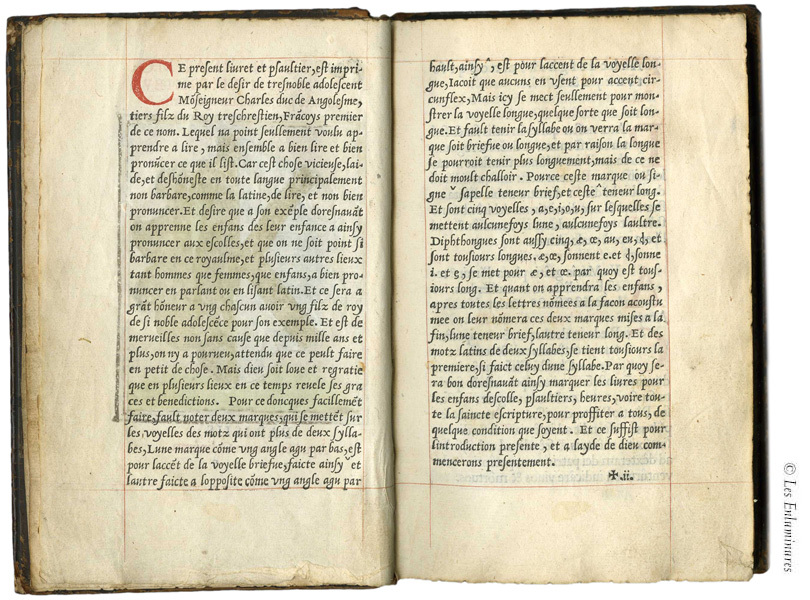 CE present liuret et psaultier, est impri-
me par le desir de tresnoble adolescent
Mõseigneur Charles duc de Angolesme,
tiers filz du Roy treschrestien, Frãcoys premier
de ce nom. Lequel na point seullement voulu ap-
prendre a lire, mais ensemble a bien lire et bien
pronũcer ce que il list. Car cest chose vicieuse, lai-
de, et deshõneste en toute langue principalement
non barbare, comme la latine, de lire, et non bien
pronuncer. Et desire que a son exẽple doresnauãt
on apprenne les enfans des leur enfance a ainsy
pronuncer aux escolles, et que on ne soit point si
barbare en ce royaulme, et plusieurs autres lieux
tant hommes que femmes, que enfans, a bien pro-
nuncer en parlant ou en lisant latin. Et ce sera a
grãt hõneur a vng chascun auoir vng filz de roy
de si noble adolescẽce pour son exemple. Et est de
merueilles non sans cause que depuis mille ans et
plus, on ny a pourueu, attendu que ce peult faire
en petit de chose. Mais dieu soit loue et regratie
que en plusieurs lieux en ce temps reuele ses gra
ces et benedictions. Pour ce doncques facillemẽt
faire, fault noter deux marques, qui se mettẽt sur
les voyelles des motz qui ont plus de deux sylla-
bes, Lune marque cõme vng angle agu par bas, est
pour laccẽt de la voyelle briefue, faicte ainsy ˇ et
lautre faicte a lopposite cõme vng angle agu par
hault, ainsy ˆ, est pour laccent de la voyelle lon-
gue, Iacoit que aucuns en vsent pour accent cir-
cunflex, Mais icy se mect seullement pour mon-
strer la voyelle longue, quelque sorte que soit lon-
gue. Et fault tenir la syllabe ou on verra la mar-
que soit briefue ou longue, et par raison la longue
se pourroit tenir plus longuement, mais de ce ne
doit moult challoir. Pource ceste marque ou si-
gne ˇ sapelle teneur brief, et ceste ˆ teneur long.
Et sont cinq voyelles, a, e, i, o, u, sur lesquelles se
mettent aulcunefoys lune, aulcunefoys laultre.
Diphthongues sont aussy cinq, æ, œ, au, eu, ę, et
sont tousiours longues. æ, œ, sonnent e. et ę, sonne
i. et ę, se met pour æ, et œ. par quoy est tous-
iours long. Et quant on apprendra les enfans,
apres toutes les lettres nõmees a la facon acoustu
mee on leur nõmera ces deux marques mises a la
fin, lune teneur brief, lautre teneur long. Et des
motz latins de deux syllabes, se tient tousiours la
premiere, si faict celuy dune syllabe. Par quoy se-
ra bon doresnauãt ainsy marquer les liures pour
les enfans descolle, psaultiers, heures, voire tou-
te la saincte escripture, pour proffiter a tous, de
quelque condition que soyent. Et ce suffist pour
lintroduction presente, et a layde de dieu com-
mencerons presentement.
✠.ii.
© Les Enluminures